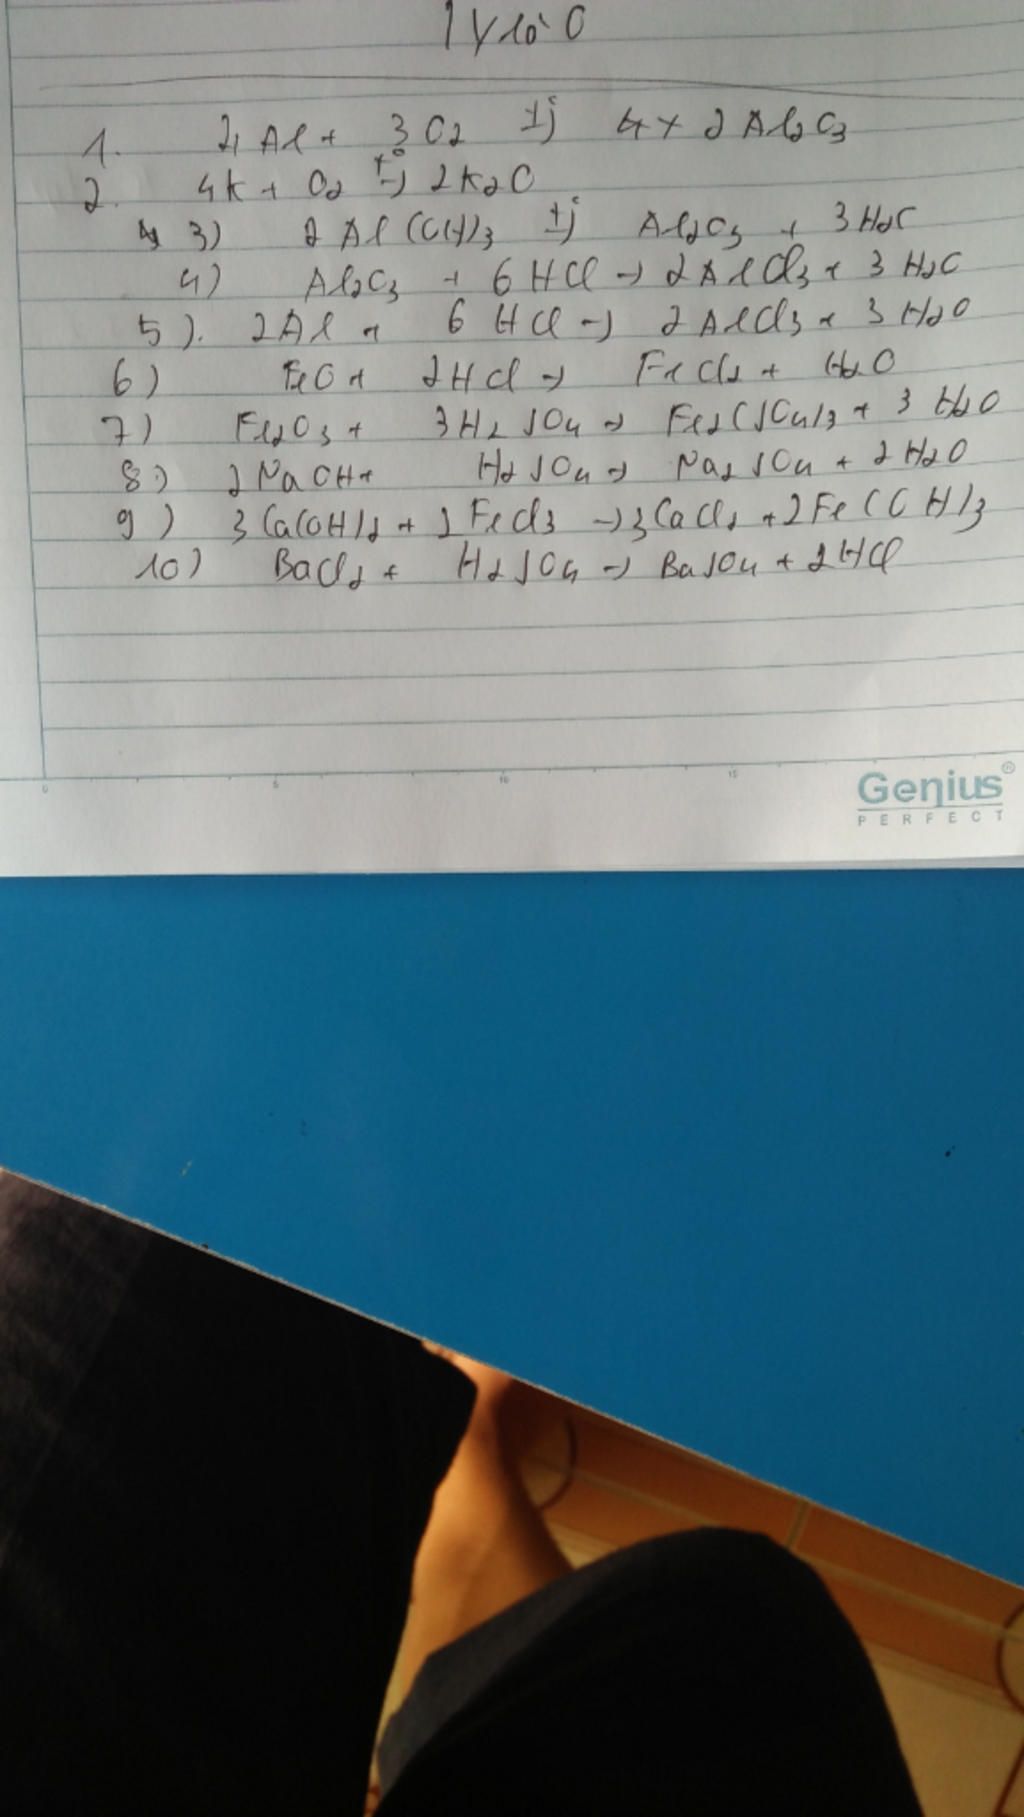 1. 4Al + 3O2 t° 2Al2O3
2. 4K + O2 t° → 2K2O
3) 2Al(OH)3 t° Al2O3 + 3H2O
4) Al2O3 + 6HCl → 2AlCl3 + 3H2O
5). 2Al + 6HCl → 2AlCl3 + 3H2O
6) FeO + 2HCl → FeCl2 + H2O
7) Fe2O3 + 3H2SO4 → Fe2(SO4)3 + 3H2O
8) 2NaOH + H2SO4 → Na2SO4 + 2H2O
9) 3Ca(OH)2 + 2FeCl3 → 3CaCl2 + 2Fe(OH)3
10) BaCl2 + H2SO4 → BaSO4 + 2HCl
0 5 10 15
Genius®
PERFECT